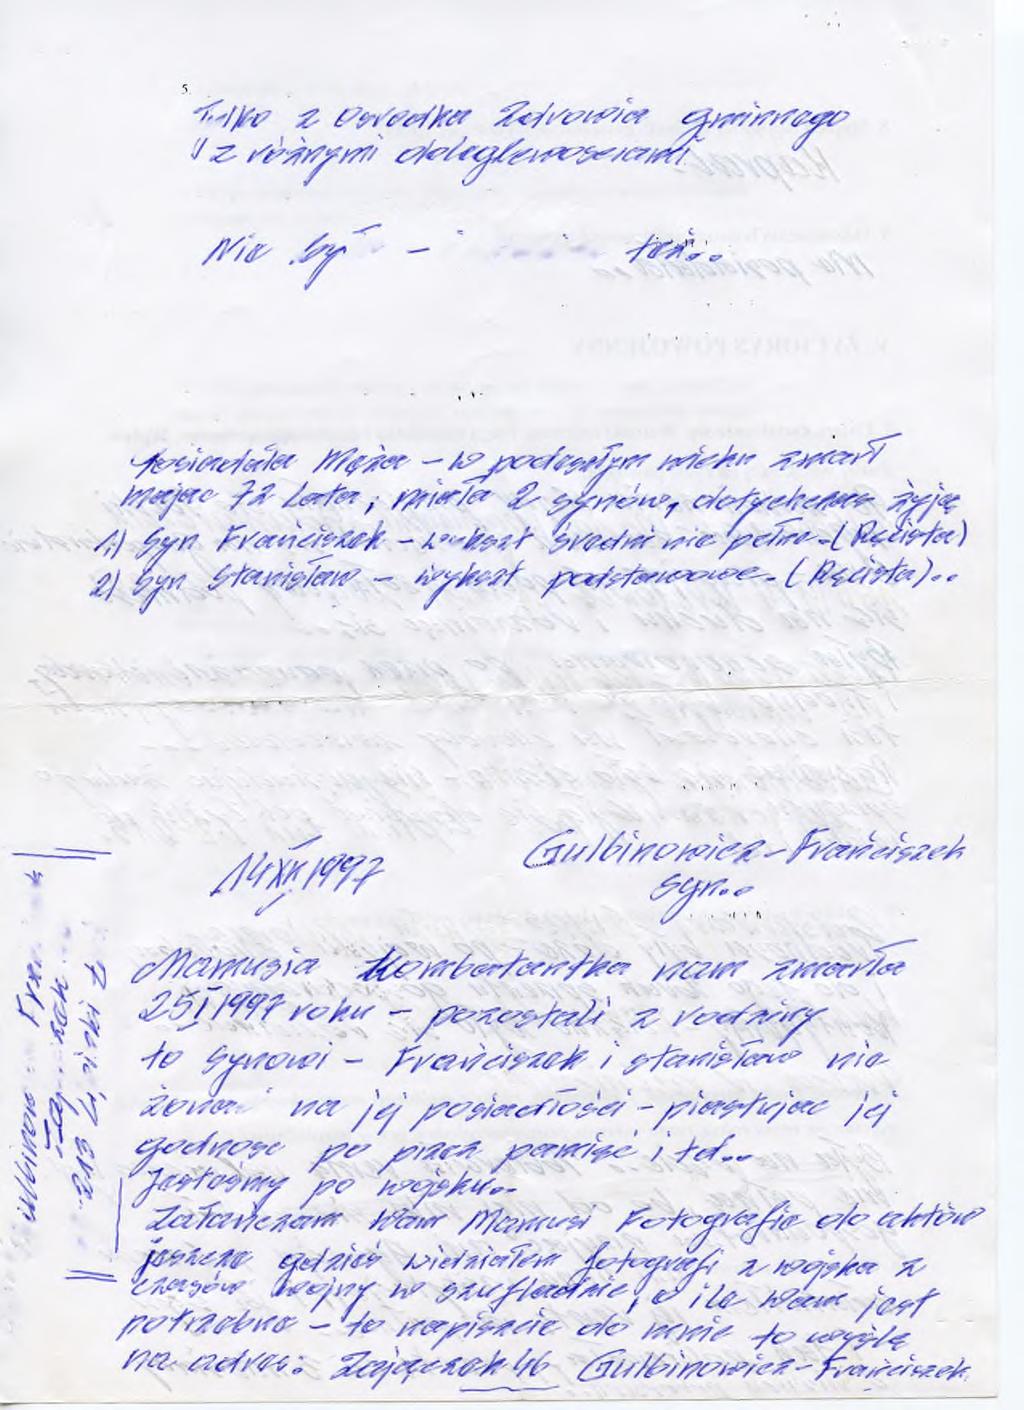 5.
Tylko z Osrodka Zdrowia gminnego
z różnymi dolegliwosciami.
Nie był – też...
Posiadała Męża – w podeszłym wieku zmarł
mając 72 Lata, miała 2 synów, dotychczas żyją
1.) Syn Frańciszek – wykszt średni nie pełne. (Ręcista)
2) Syn Stanisław – wykszt podstawowe. (Ręcista)..
14 XII 1997
Gulbinowicz – Frańciszek
syn..
Mamusia Kombatantka nam zmarła
25 I 1997 roku – pozostali z rodziny
to synowi – Frańciszek i stanisław nie
na jej posiadłości – piastując jej
godnosc po przez pamięć i td..
Jestośmy po wojsku..
Załańczam Wam Mamusi Fotografie do aktów
jeszcze gdzieś widziałem fotografi z wojska z
czasów wojny w szufladzie, o ile Wam jest
potrzebne – to napiszcie do mnie to wyślę
na adres: Zajączek 46 Gulbinowicz – Frańciszek.